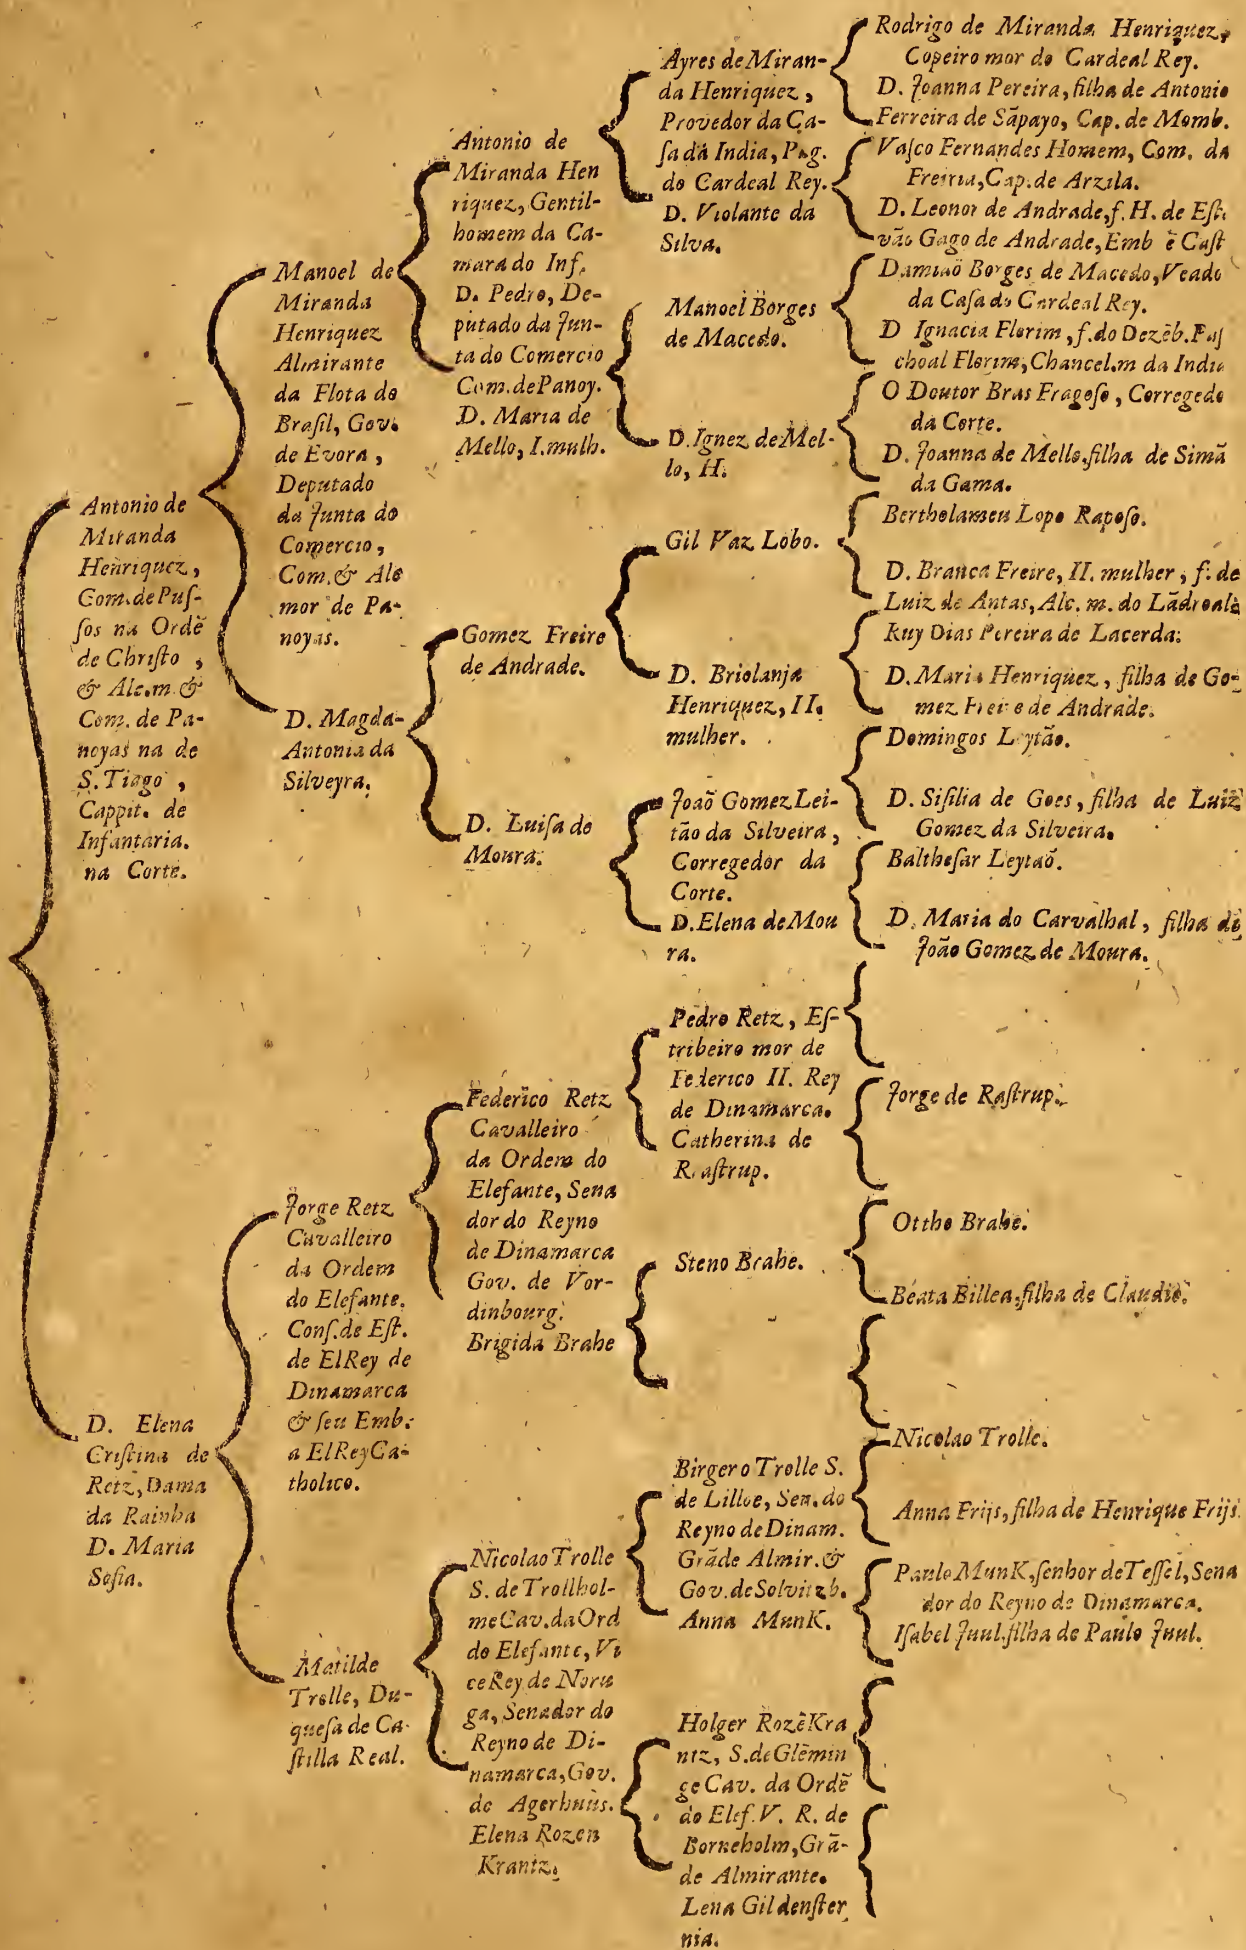 Antonio de
Miranda
Henriquez,
Com. de Puſ-
ſos na Ordẽ
de Chriſto,
& Alc.m &
Com. de Pa-
noyas na de
S. Tiago,
Cappit. de
Infantaria.
na Corte.
D. Elena
Criſtina de
Retz, Dama
da Rainha
D. Maria
Sofia.
Manoel de
Miranda
Henriquez
Almirante
da Flota do
Braſil, Gov.
de Evora,
Deputado
da Junta do
Comercio,
Com. & Alc
mor de Pa-
noyas.
D. Magda-
Antonia da
Silveyra.
Jorge Retz
Cavalleiro
da Ordem
do Elefante.
Conſ. de Eſt.
de ElRey de
Dinamarca
& ſeu Emb.
a ElRey Ca-
tholico.
Matilde
Trolle, Du-
queſa de Ca-
ſtilla Real.
Antonio de
Miranda Hen
riquez, Gentil-
homem da Ca-
mara do Inf.
D. Pedro, De-
putado da Jun-
ta do Comercio
Com. de Panoy.
D. Maria de
Mello, I. mulh.
Gomez Freire
de Andrade.
D. Luiſa de
Moura.
Federico Retz
Cavalleiro
da Ordem do
Elefante, Sena
dor do Reyno
de Dinamarca
Gov. de Vor-
dinbourg.
Brigida Brahe
Nicolao Trolle
S. de Trollhol-
me Cav. da Ord
do Elefante, Vi
ce Rey de Noru
ga, Senador do
Reyno de Di-
namarca, Gov.
de Agerhuus.
Elena Rozen
Krantz.
Ayres de Miran-
da Henriquez,
Provedor da Ca-
ſa da India, Pag.
do Cardeal Rey.
D. Violante da
Silva.
Manoel Borges
de Macedo.
D. Ignez de Mel-
lo, H.
Gil Vaz Lobo.
D. Briolanja
Henriquez, II.
mulher.
Joaõ Gomez Lei-
tão da Silveira,
Corregedor da
Corte.
D. Elena de Mou
ra.
Pedro Retz, Eſ-
tribeiro mor de
Federico II. Rey
de Dinamarca.
Catherina de
Raſtrup.
Steno Brahe.
Birgero Trolle S.
de Lilloe, Sen. do
Reyno de Dinam.
Grãde Almir. &
Gov. de Solvitzb.
Anna MunK.
Holger RozẽKra
ntz, S. de Glẽmin
ge Cav. da Ordẽ
do Elef. V. R. de
Borneholm, Grã-
de Almirante.
Lena Gildenſter
nia.
Rodrigo de Miranda Henriquez,
Copeiro mor do Cardeal Rey.
D. Joanna Pereira, filha de Antonio
Ferreira de Sãpayo, Cap. de Momb.
Vaſco Fernandes Homem, Com. da
Freiria, Cap. de Arzila.
D. Leonor de Andrade, f. H. de Eſt.
vão Gago de Andrade, Emb ẽ Caſt
Damiaõ Borges de Macedo, Veado
da Caſa do Cardeal Rey.
D Ignacia Florim, f. do Dezẽb. Paſ
choal Florim, Chancel.m da India
O Doutor Bras Fragoſo, Corregedo
da Corte.
D. Joanna de Mello, filha de Simã
da Gama.
Bertholameu Lopo Rapoſo.
D. Branca Freire, II. mulher, f. de
Luiz de Antas, Alc. m. do Lãdroal
Ruy Dias Pereira de Lacerda.
D. Maria Henriquez, filha de Go-
mez Freire de Andrade.
Domingos Leytão.
D. Siſilia de Goes, filha de Luiz
Gomez da Silveira.
Baltheſar Leytaõ.
D. Maria do Carvalhal, filha de
João Gomez de Moura.
Jorge de Raſtrup.
Ottho Brahe.
Beata Billea, filha de Claudio.
Nicolao Trolle.
Anna Frijs, filha de Henrique Frijs.
Paulo MunK, ſenhor de Teſſel, Sena
dor do Reyno de Dinamarca.
Iſabel Juul, filha de Paulo Juul.